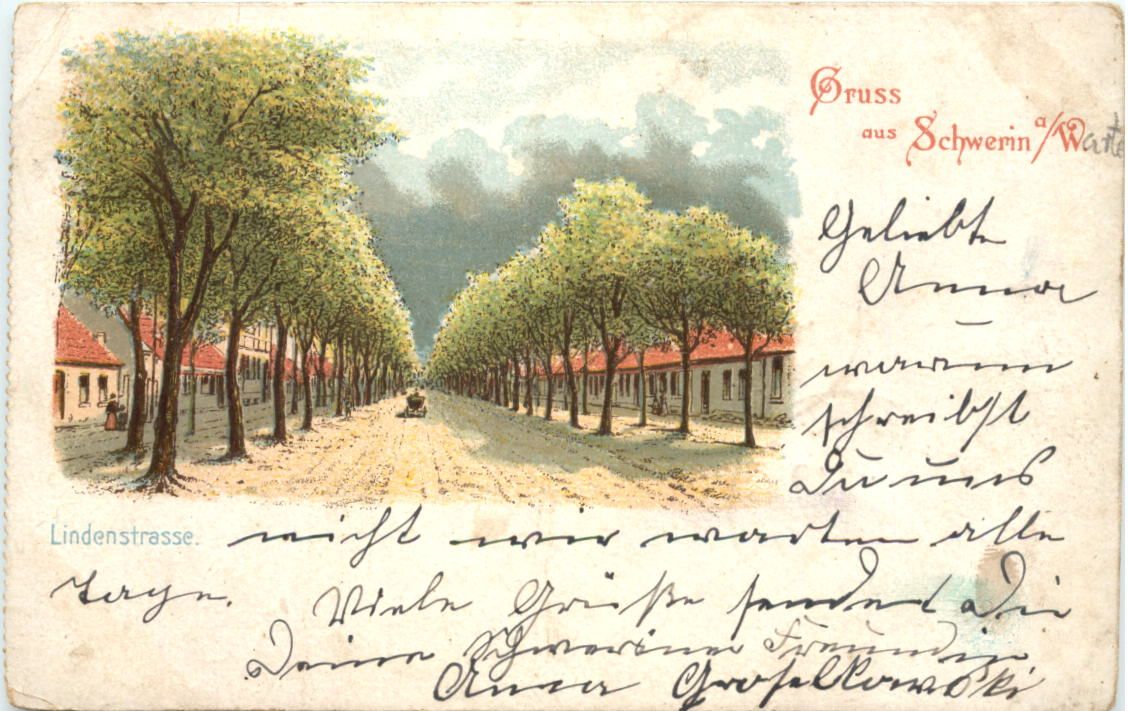 Gruss
aus Schwerin a/Warte
Geliebte
Anna
warum
schreibst
Du uns
Lindenstrasse.
nicht wir warten alle
Tage. Viele Grüße sendet Dir
Deine Schweriner Freundin
Anna Groselkowski